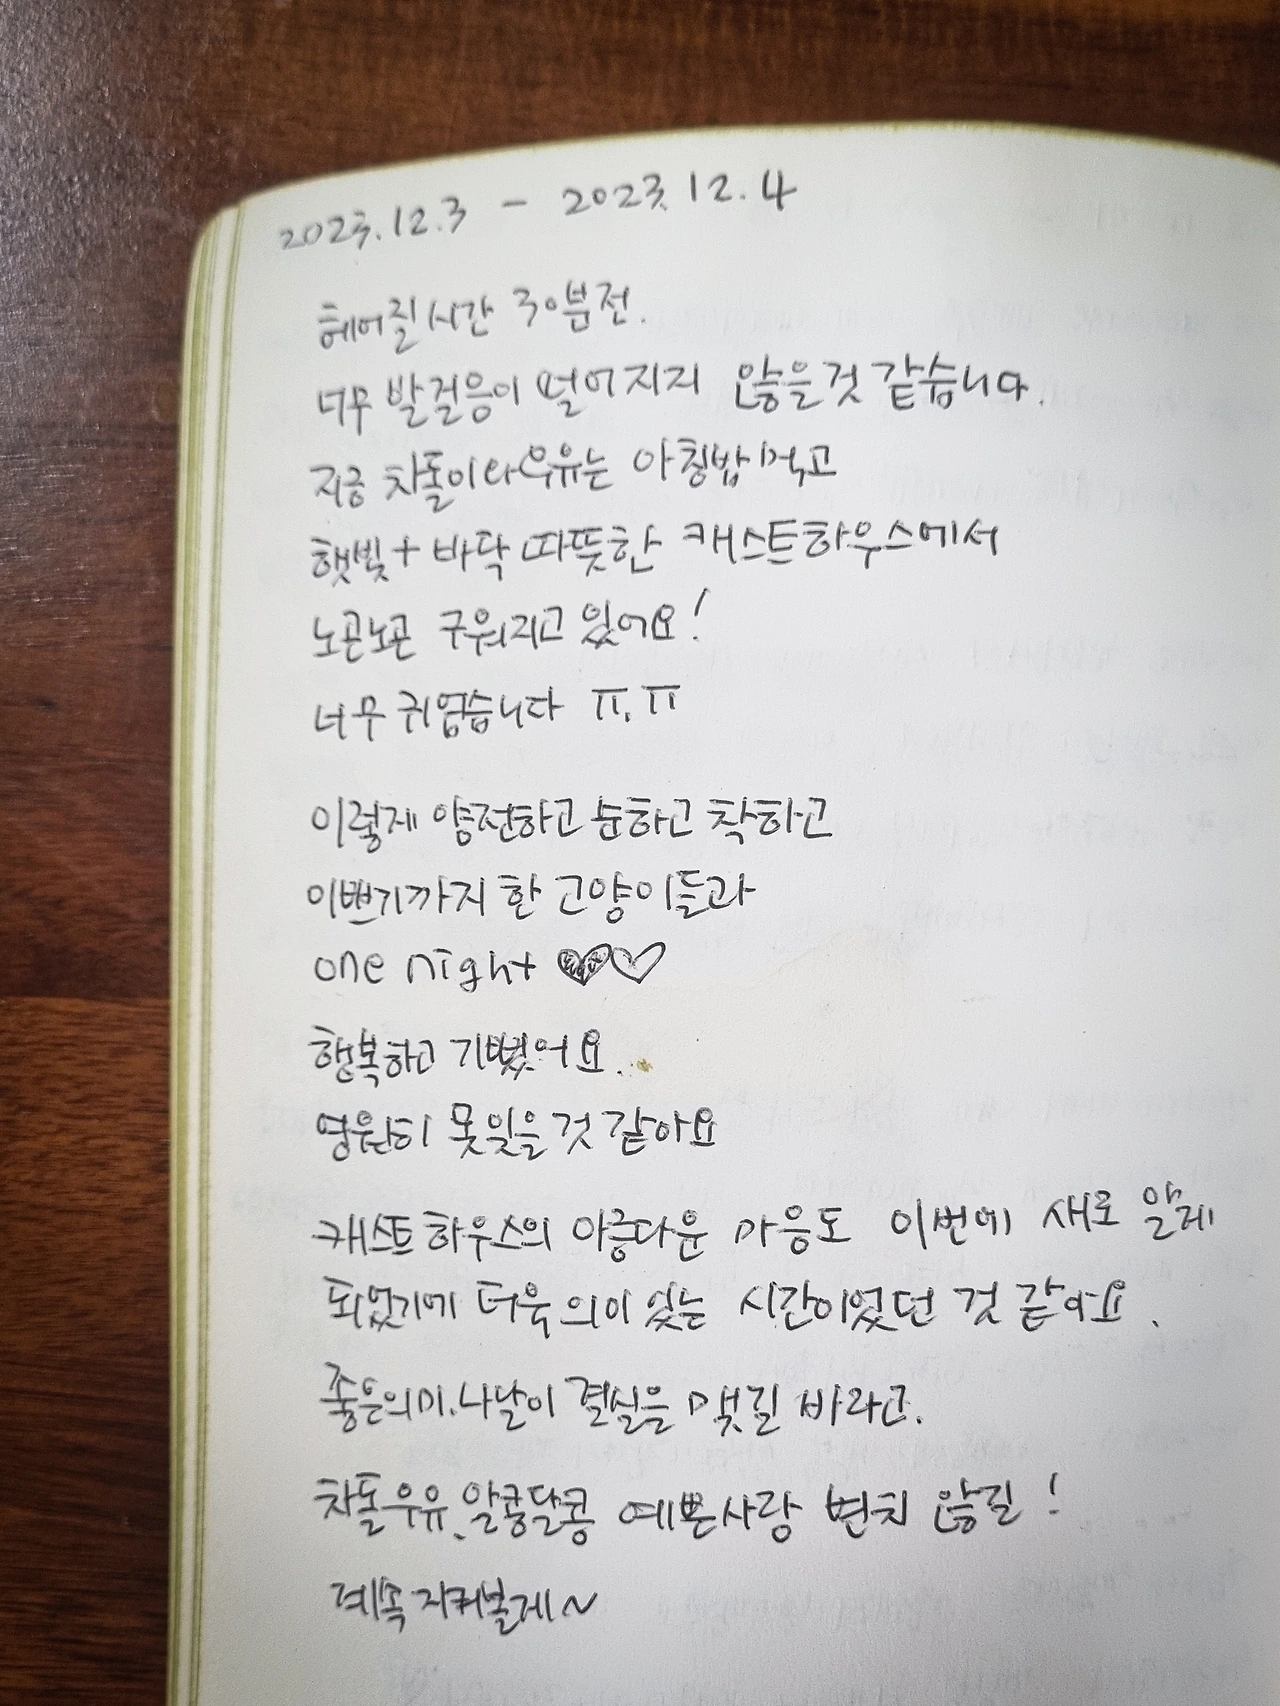 2023.12.3 - 2023.12.4
헤어질시간 30분전.
너무 발걸음이 떨어지지 않을것 같습니다.
지금 차돌이랑우유는 아침밥 먹고
햇빛+바닥 따뜻한 캐스트하우스에서
노곤노곤 구워지고 있어요!
너무 귀엽습니다 ㅠ.ㅠ
이렇게 얌전하고 순하고 착하고
이쁘기까지 한 고양이들과
one night ♥♡
행복하고 기뻤어요.
영원히 못잊을것 같아요
캐스트하우스의 아름다운 마음도 이번에 새로 알게
되었기에 더욱 의미 있는 시간이었던 것 같아요.
좋은의미.나날이 결실을 맺길 바라고.
차돌우유. 알콩달콩 예쁜사랑 변치 않길!
계속 지켜볼게~